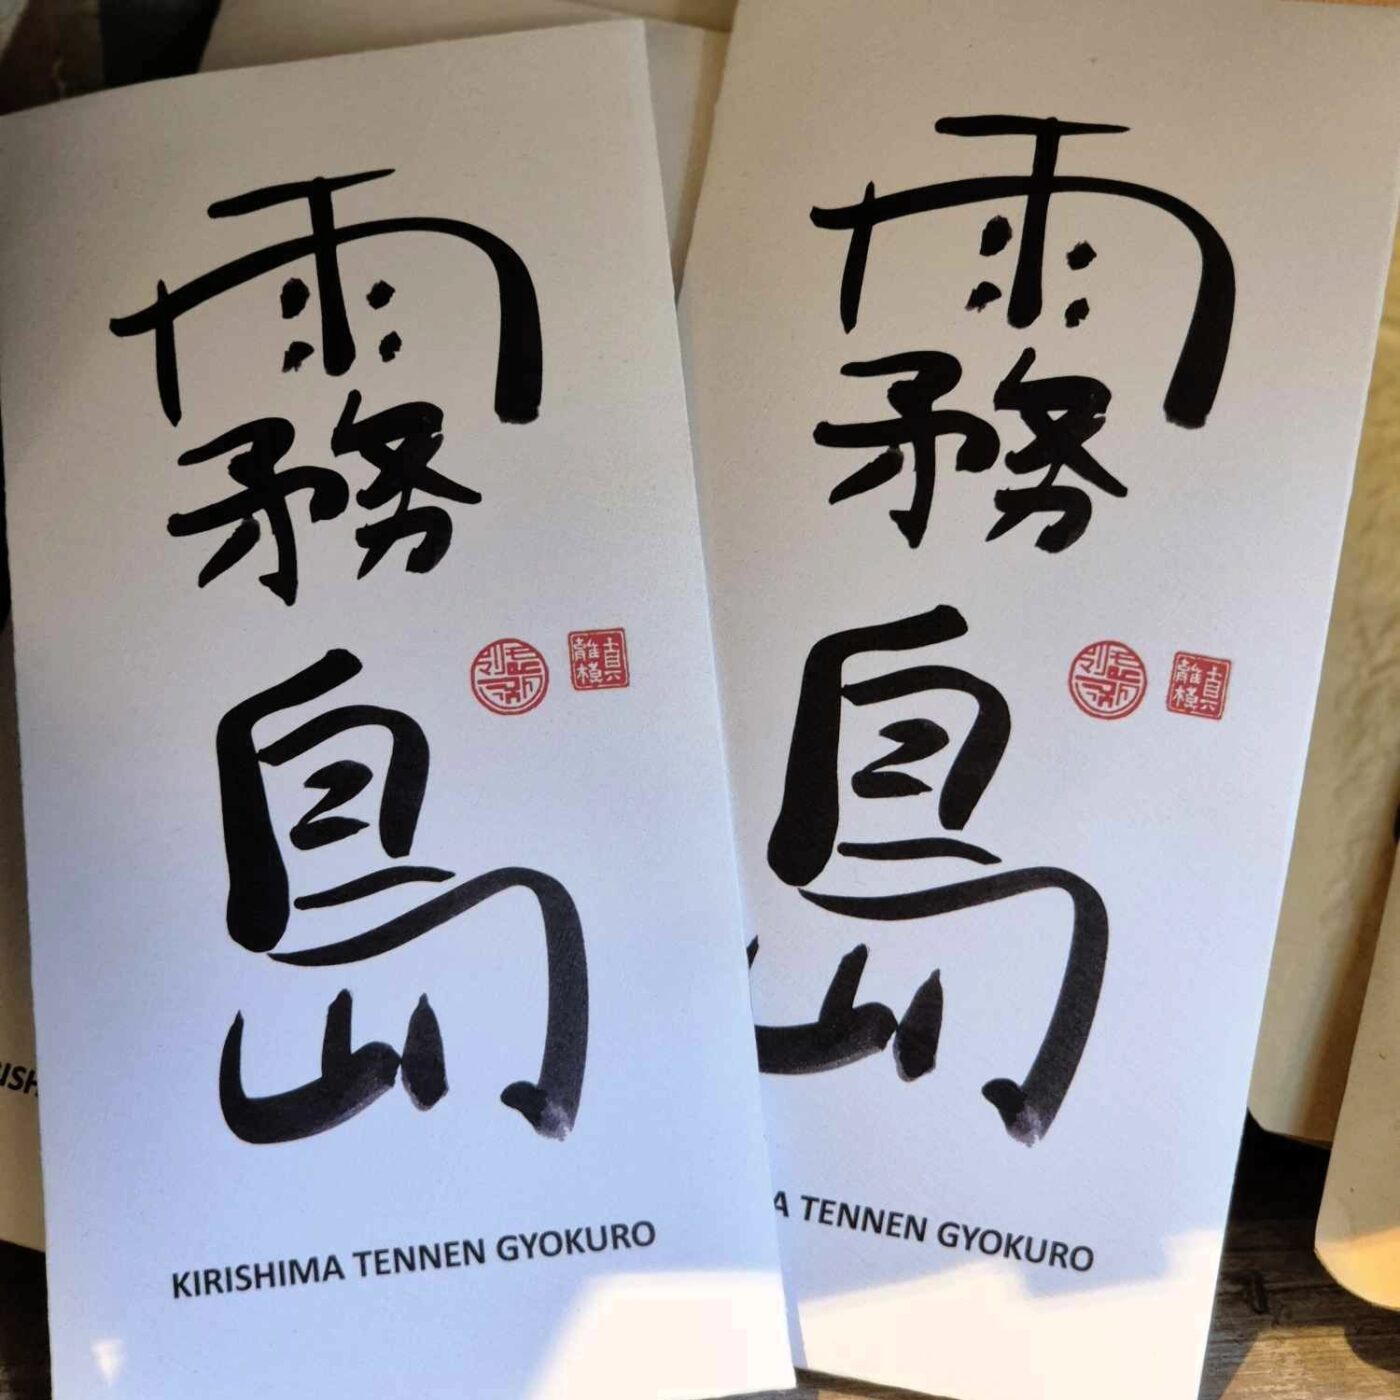 霧島
KIRISHIMA TENNEN GYOKURO
霧島
A TENNEN GYOKURO